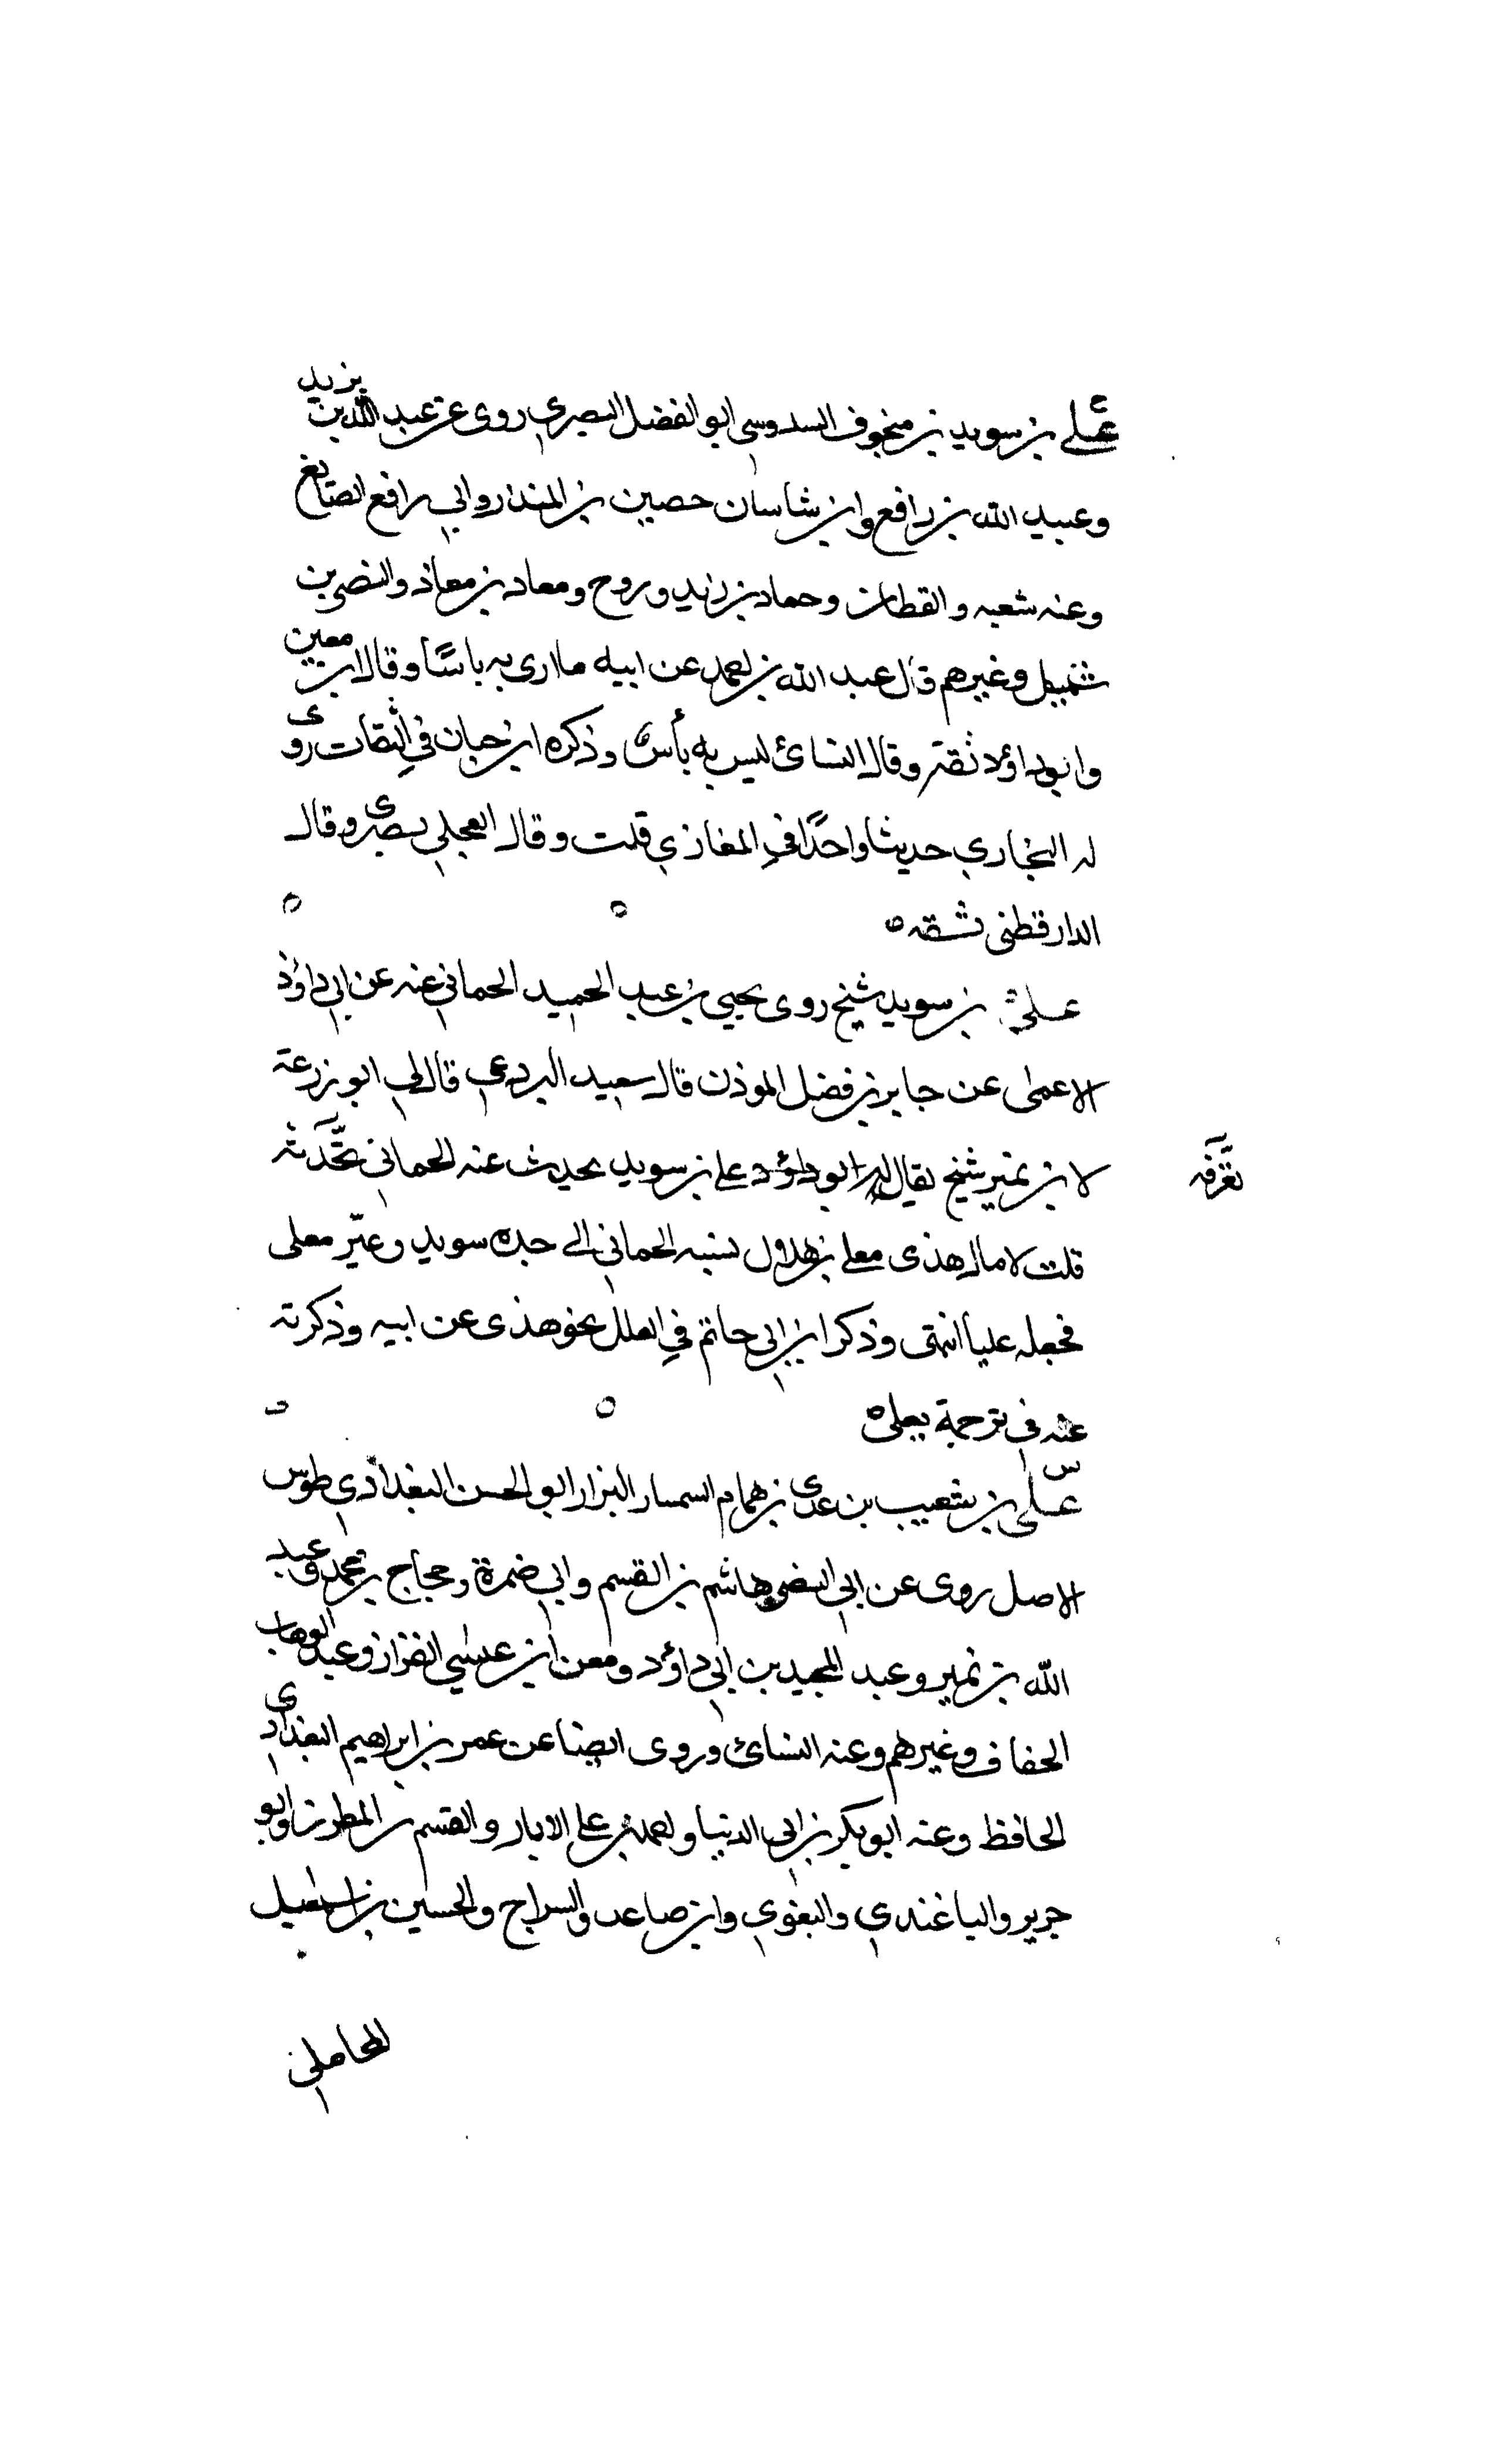 علي بن سويد بن منجوف السدوسي ابو الفضل البصري روى عن عبد الله بن يزيد
وعبيد الله بن رافع وابن شاسان حصين بن المنذر وابي رافع الصائغ
وعنه شعبه والقطان وحماد بن زيد وروح ومعاد بن معاذ والنضر بن
شميل وغيرهم قال عبد الله بن احمد عن ابيه ما ارى به باسًا وقال ابن معين
وابو داؤد ثقة وقال النسائ ليس به بأس وذكره ابن حبان في الثقات روى
له البخاري حديثا واحدًا في المغازي قلت وقال العجلي بصرى وقال
الدارقطنى ثقه ه
علي بن سويد شيخ روى يحيي بن عبد الحميد الحماني عنه عن ابي داؤد
الاعمى عن جابر بن فضل الموذن قال سعيد البردعي قال لي ابو زرعة
لابن نمير شيخ يقال له ابو داؤد علي بن سويد يحدث عنه الحماني تحَّدثه
تعَرفه
قلت لا مال هذى معلى بن هلال نسبه الحماني الى جده سويد وغيّر معلى
فجعله علياً انتهى وذكر ابن ابي حاتم في العلل نحو هذى عن ابيه وذكرته
عنه في ترجمة يعلى ه
س
علي بن شعيب بن عدى بن همام السمسار البزار ابو الحسن البغدادي طوس
الاصل روى عن ابي النضر هاشم بن القسم وابي ضمرة وحجاج بن محمد وعبد
الله بن نمير وعبد المجيد بن ابي داؤد ومعن ابن عيسي القزاز وعبد الوهاب
الخفاف وغيرهم وعنه النسائ وروى ايضا عن عمر بن ابراهيم البغدادى
الحافظ وعنه ابو بكر بن ابي الدنيا واحمد بن علي الابار والقسم بن المطرز وابو
جرير والباغندي والبغوي وابن صاعد والسراج والحسين بن اسمعيل
المحاملي